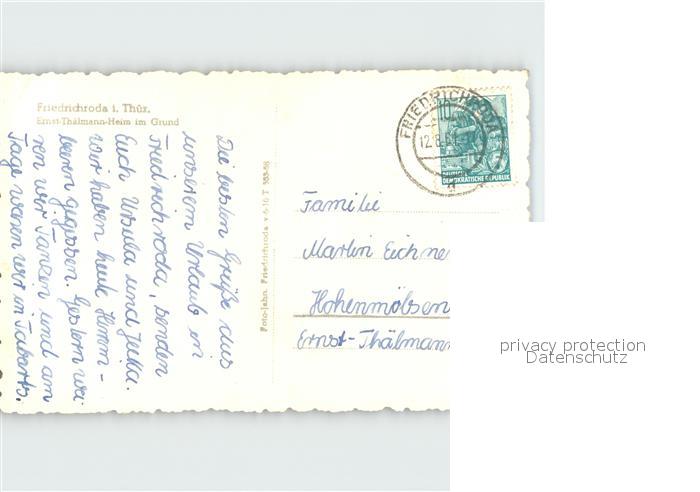 Friedrichroda i. Thür.
Ernst-Thälmann-Heim im Grund
Die besten Grüße aus
unserem Urlaub in
Friedrichroda, senden
Euch Ursula und Jutta.
Wir haben heute
gegessen. Gestern wa-
ren wir Tanzen und am
Tage waren wir in Tabarz.
Foto-Jahn, Friedrichroda
FRIEDRICHRODA
12.8.
10
DEUTSCHE
DEMOKRATISCHE REPUBLIK
Familie
Martin Eichne
Hohenmölsen
Ernst-Thälmann
privacy protection
Datenschutz